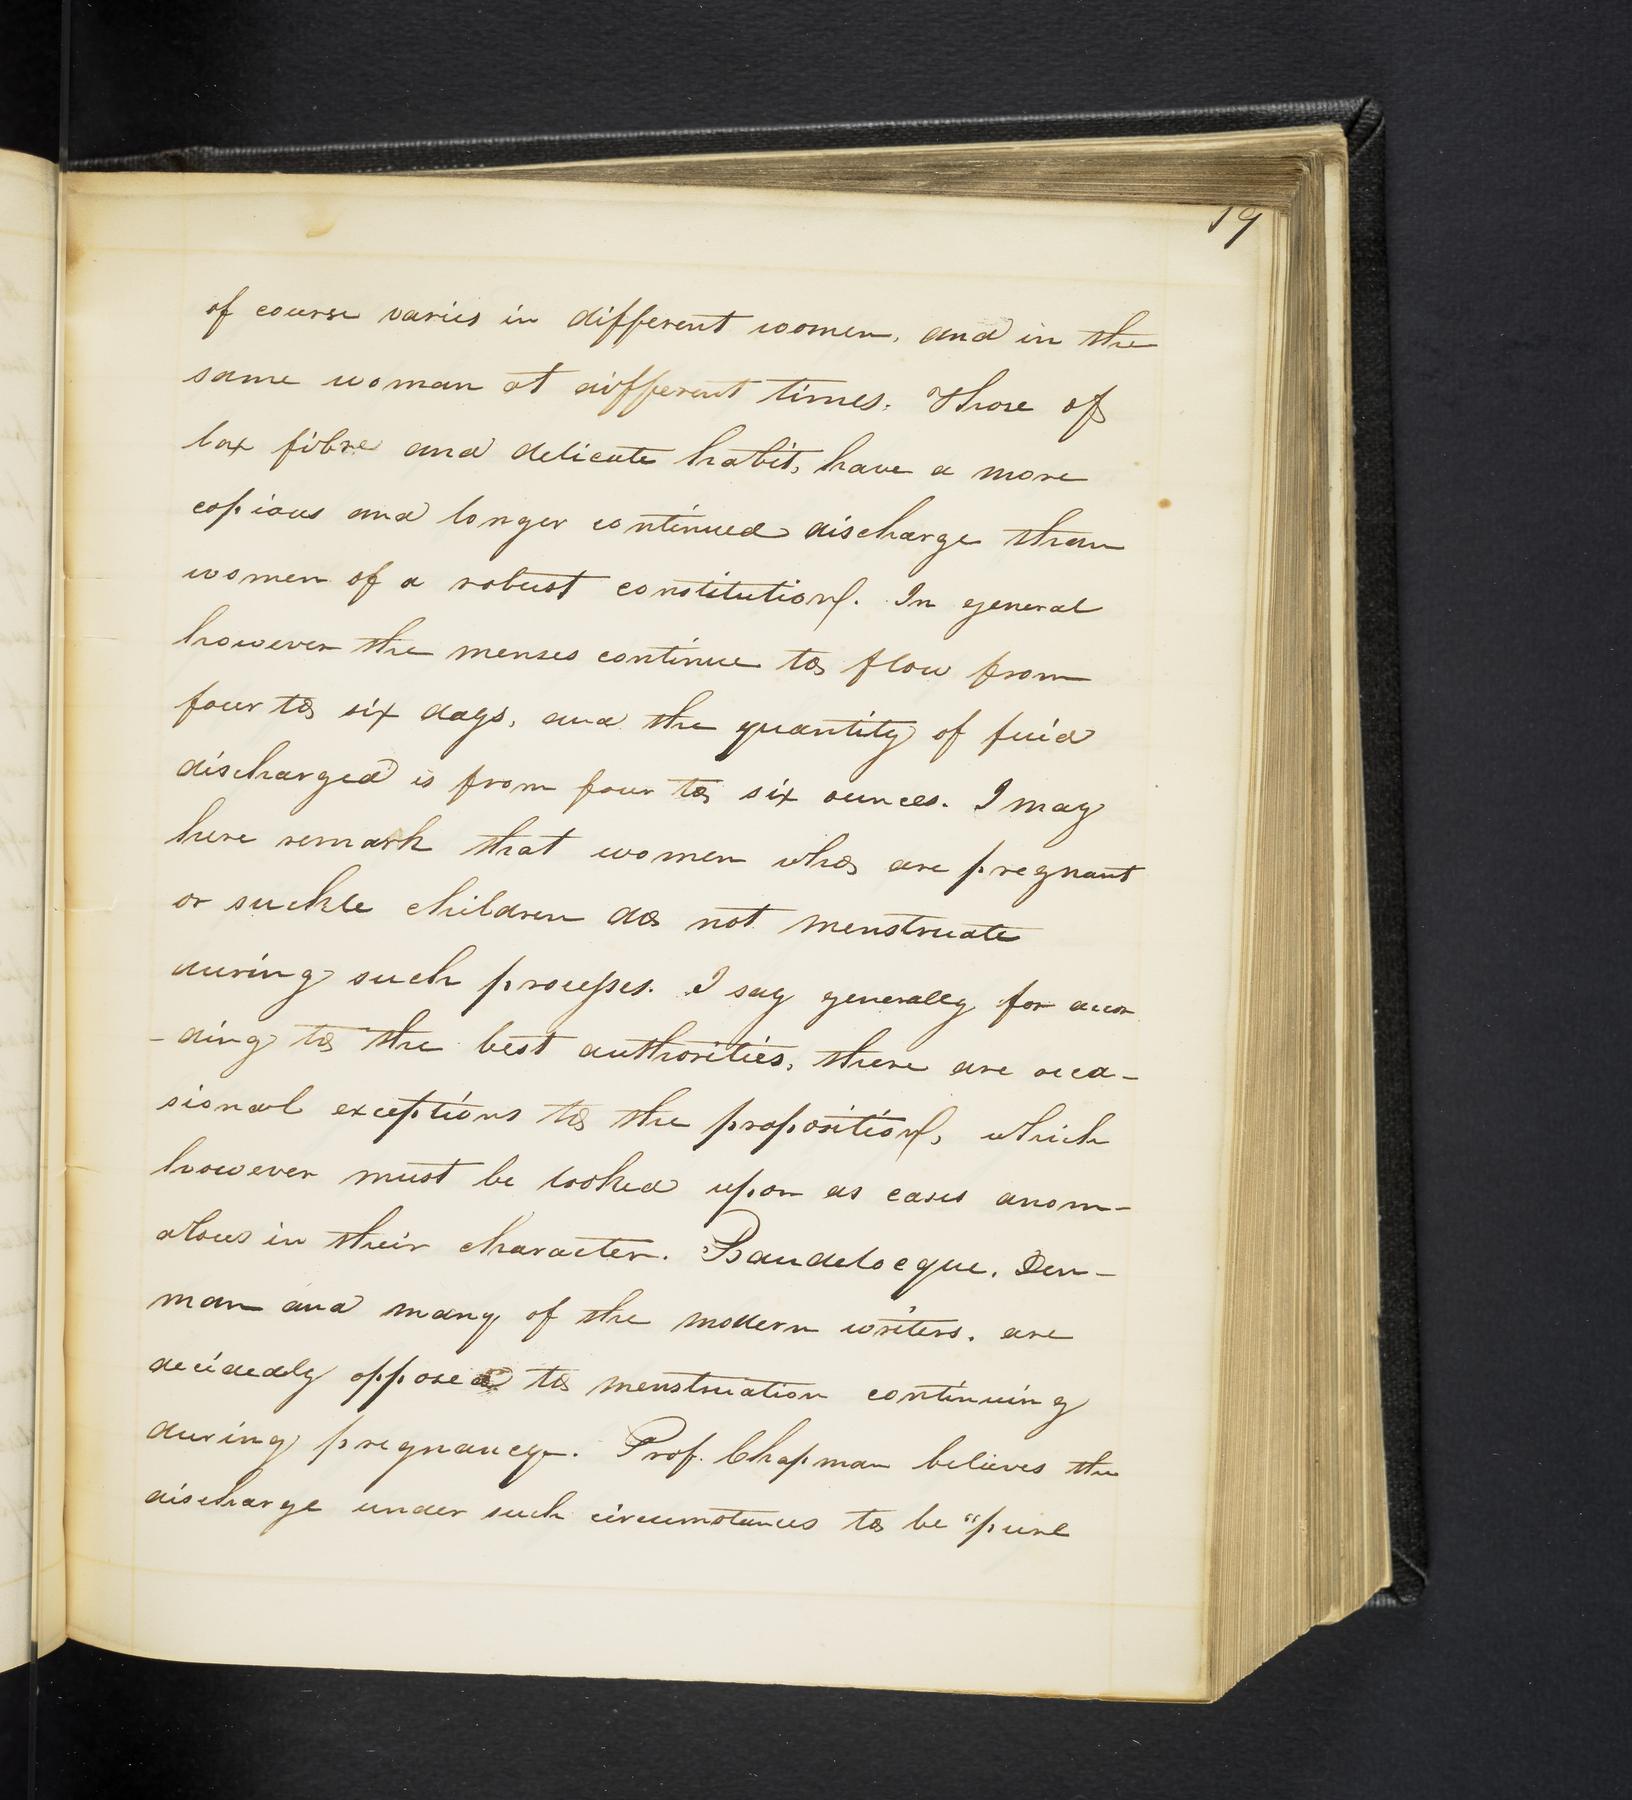 19
of course varies in different women, and in the
same woman at different times. Those of
lax fibre and delicate habit, have a more
copious and longer continued discharge than
women of a robust constitution. In general
however the menses continue to flow from
four to six days, and the quantity of fuid
discharged is from four to six ounces. I may
here remark that women who are pregnant
or suckle children do not menstruate
during such processes. I say generally for accor
-ding to the best authorities, there are occa-
sional exceptions to the proposition, which
however must be looked upon as cases anom-
alous in their character. Baudelocque, Den-
man and many of the modern writers, are
decidedly opposed to menstruation continuing
during pregnancy. Prof. Chapman believes the
discharge under such circumstances to be "pure